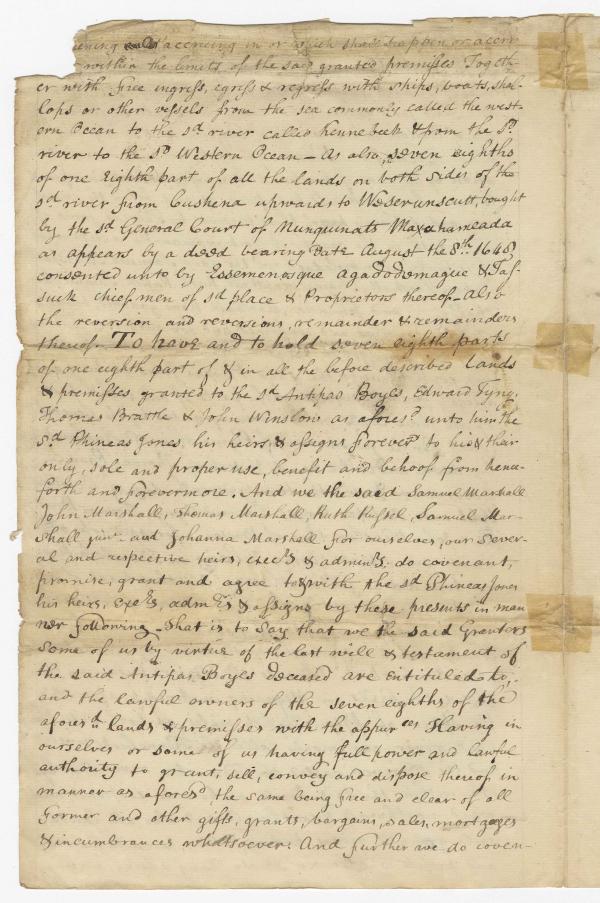 accrueing in or which shall happen or accrue
within the limits of the said granted premisses Togeth-
er with free ingress, egress & regress with ships, boats, shal-
lops or other vessels from the sea commonly called the west-
ern Ocean to the sd river called kennebeck & from the sd
river to the sd Western Ocean — As also, seven eighths
of one Eighth part of all the lands on both sides of the
sd river from Cushena upwards to Weserunscutt, bought
by the sd General Court of Nunquinats Maxahameada
as appears by a deed bearing Date August the 8th. 1648
consented unto by Essemenosque Agadodemague & Tas-
suck chief men of sd place & Proprietors thereof — Also
the reversion and reversions, remainder & remainders
thereof. To have and to hold seven eighth parts
of one eighth part of & in all the before described Lands
& premisses granted to the sd Antipas Boyes, Edward Tyng,
Thomas Brattle & John Winslow as aforesd unto him the
sd Phineas Jones, his heirs & assigns forever to his & their
only, sole and proper use, benefit and behoof from hence-
forth and forevermore. And we the said Samuel Marshall
John Marshall, Thomas Marshall, Ruth Russel, Samuel Mar-
shall junr. and Johanna Marshall for ourselves, our sever-
al and respective heirs, execrs & adminrs. do covenant,
promise, grant and agree to & with the sd Phineas Jones
his heirs, exers, admrs & assigns by these presents in man
ner following That is to say that we the said Granters
some of us by virtue of the last will & testament of
the said Antipas Boyes deceased are entituled to,
and the lawful owners of the seven eighths of the
aforesd lands & premisses with the appurces Having in
ourselves or some of us having full power and lawful
authority to grant, sell, convey and dispose thereof in
manner as aforesd, the same being free and clear of all
former and other gifts, grants, bargains, sales, mortgages
& incumbrances whatsoever: And further we do coven-